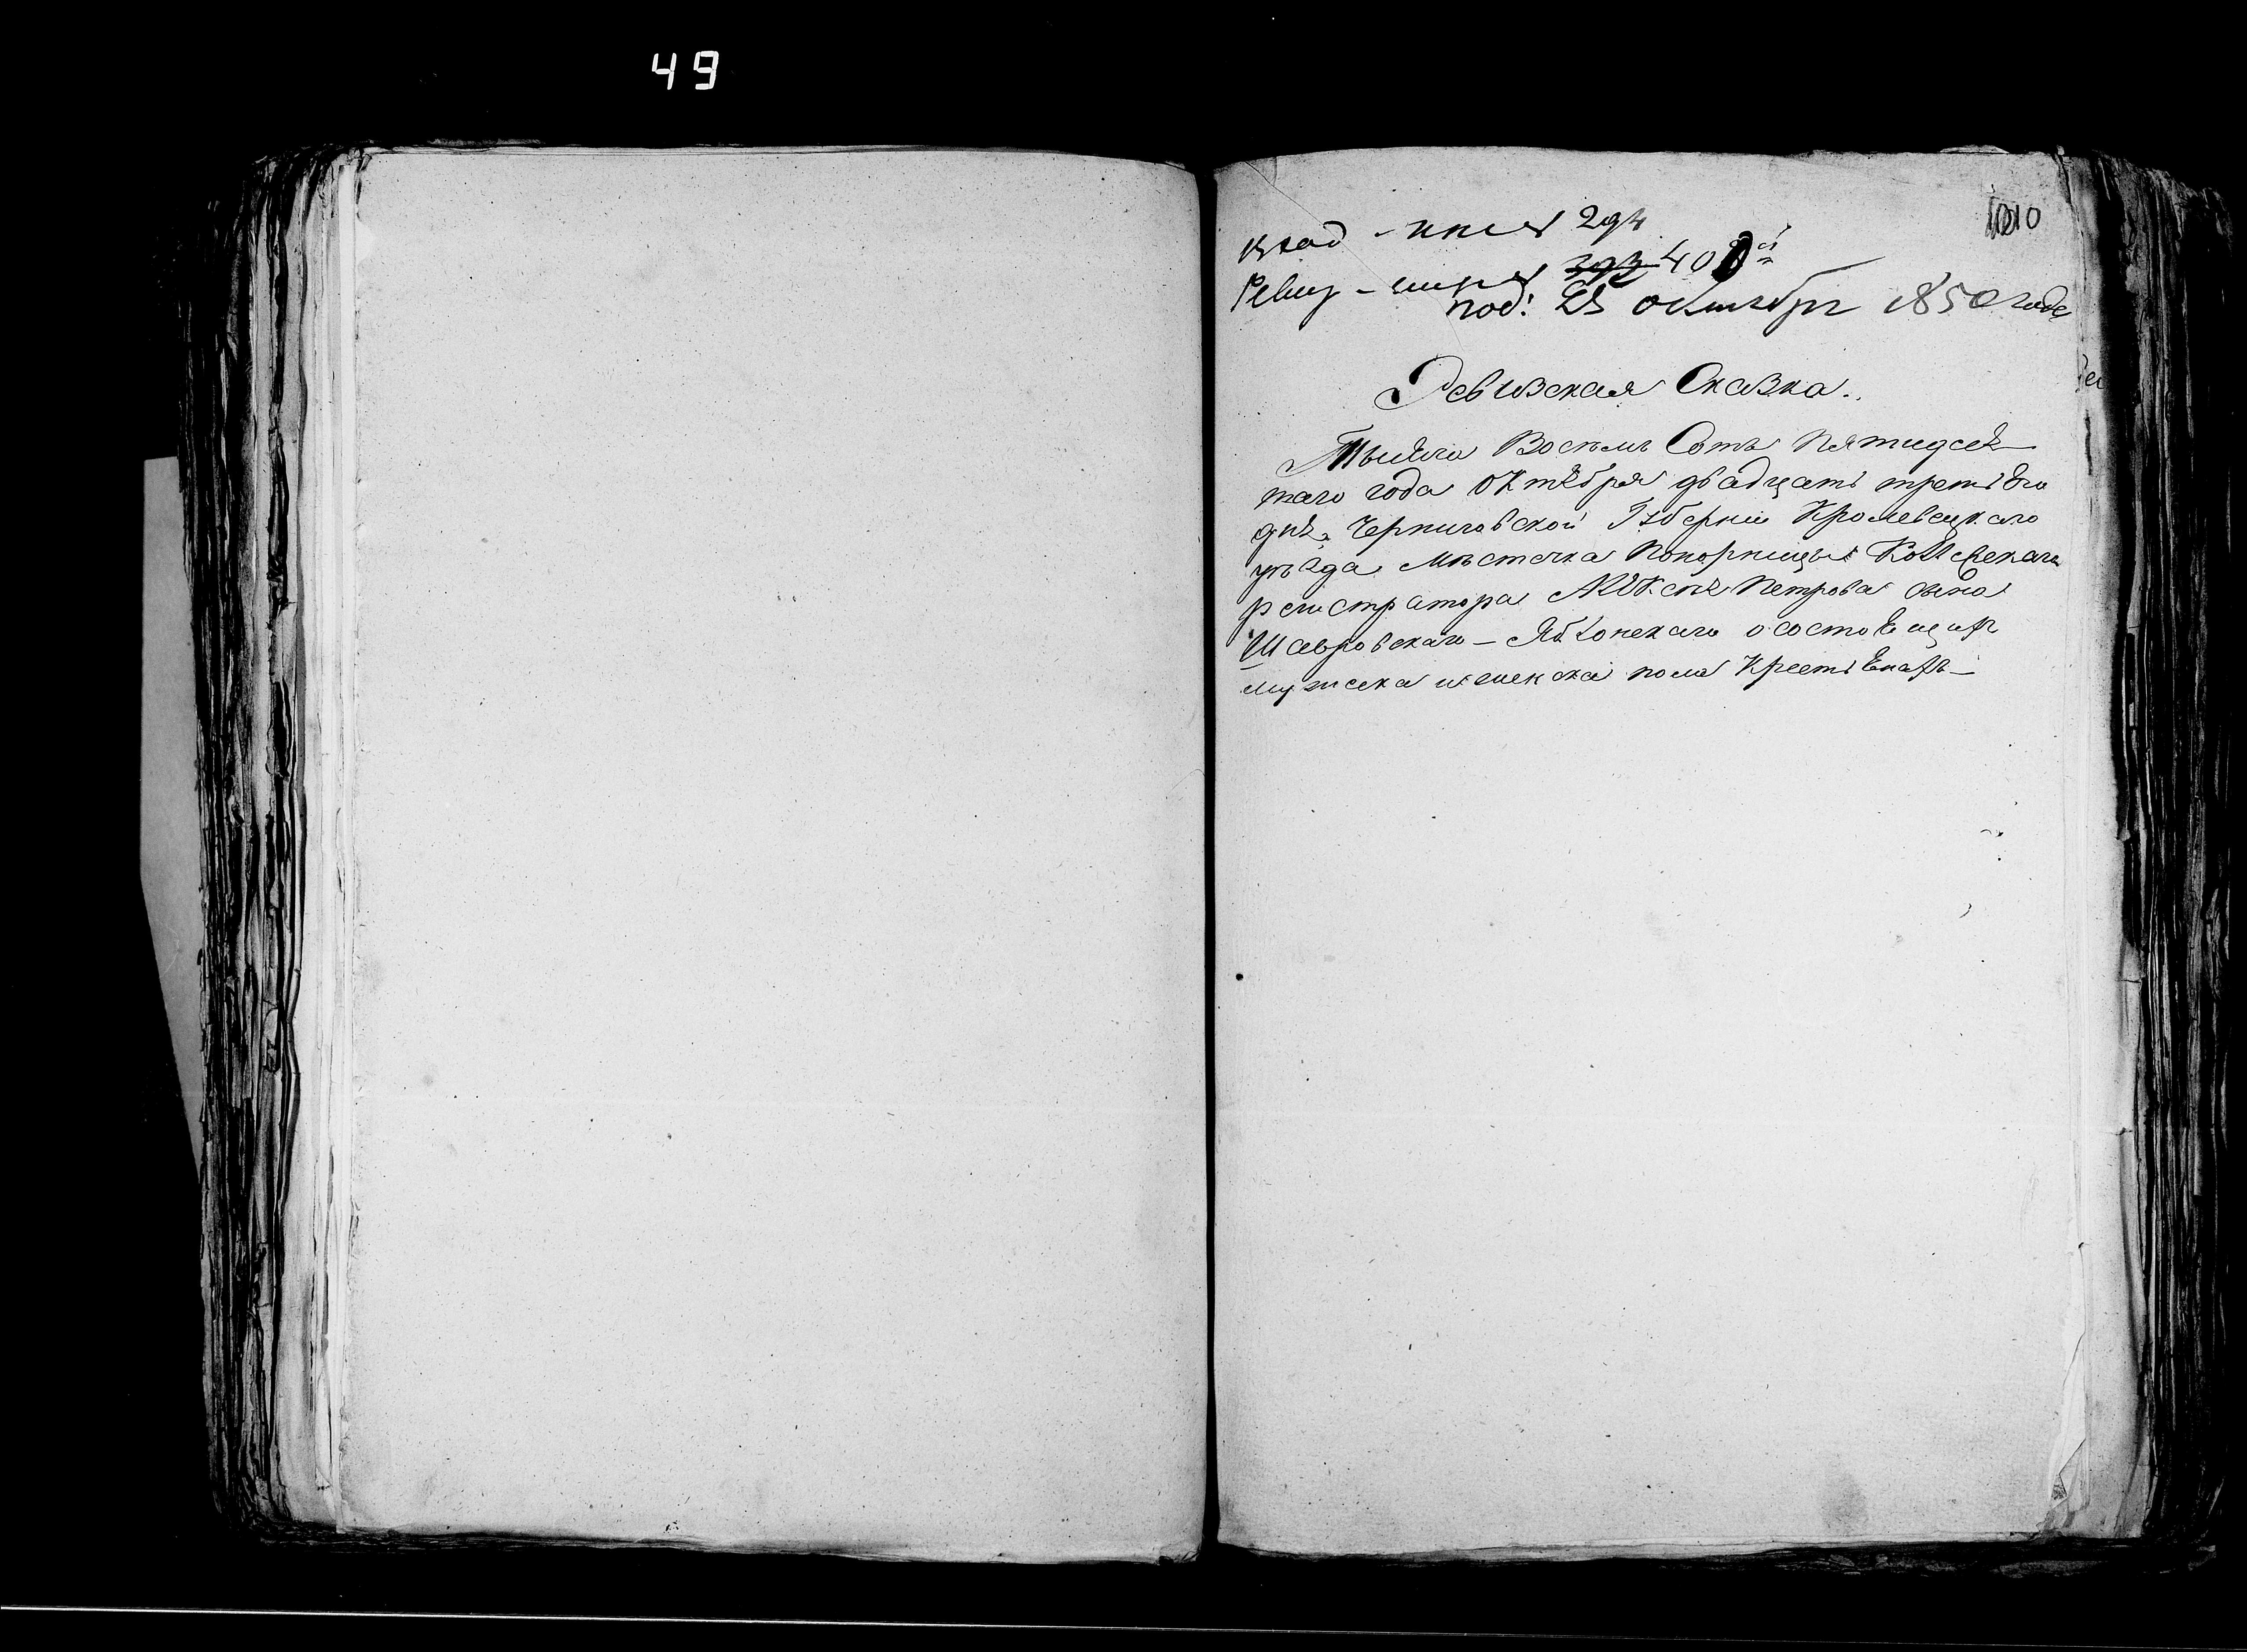 49
1010
294
393 400
под: 23 октября 1850 года
Ревизская Сказка.
Тысяча Восемь Сотъ Пятидеся
таго года Октября двадцать третьего
дня, Черниговской Губернии Кролевецкаго
уѣзда Мѣстечка Понорницы Коллежскаго
регистратора Алексея Петрова сына
Яблонскаго о состоящихъ
мужска и женска пола Крестьянахъ